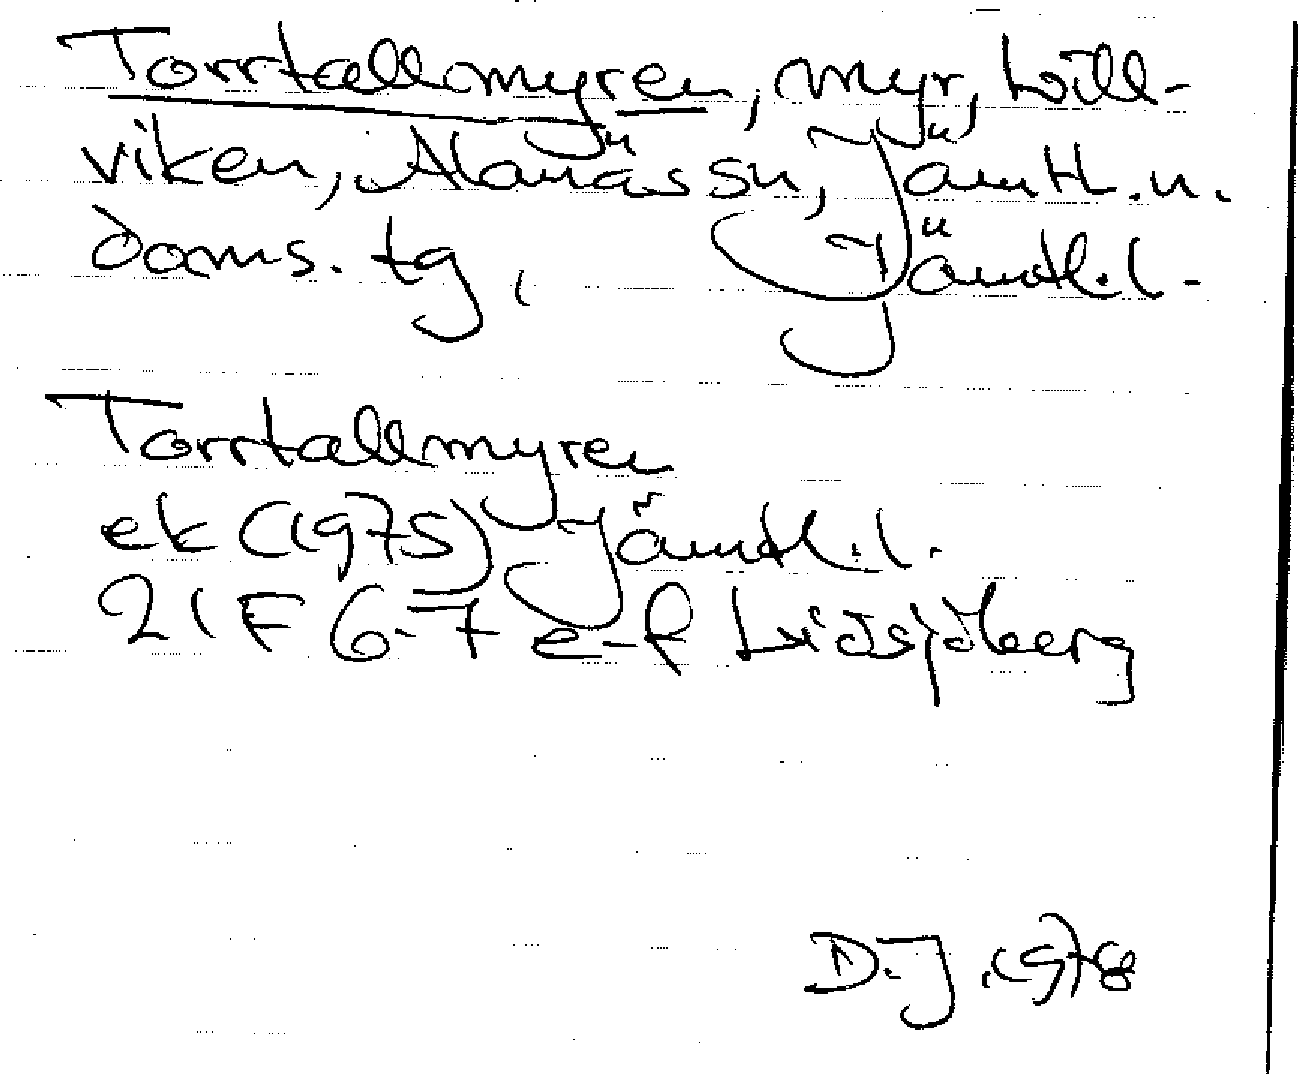 Torrtallmyren, myr, Lill-
viken, Alanäs sn, Jämtl.n.
doms. tg, Jämtl.l.
Torrtallmyren
ek (1975) Jämtl.l.
21F 6-7 e-f Lidsjöberg
D.J. 1978